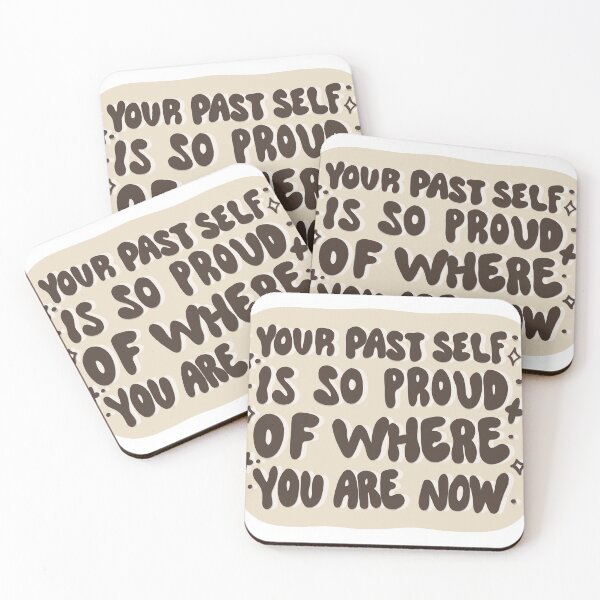 YOUR PAST SELF
IS SO PROUD
OF
YOUR PAST SELF
IS SO PROUD
OF WHERE
YOU ARE NOW
YOUR PAST SELF
IS SO PROUD
OF WHERE
YOU ARE
YOUR PAST SELF
IS SO PROUD
OF WHERE
YOU ARE NOW